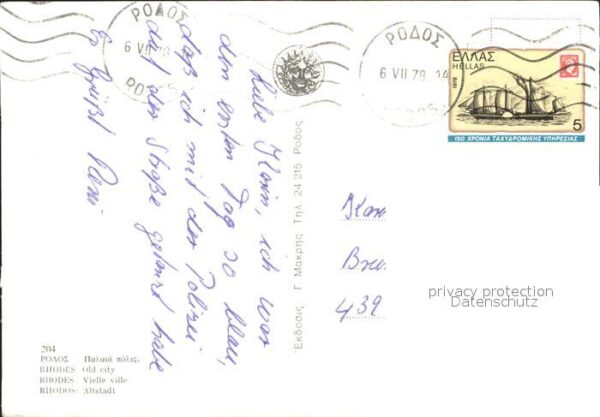 ΡΟΔΟΣ
6 VII 78
ΡΟΔΟΣ
6 VII 78 14
ΕΛΛΑΣ
HELLAS
1978
5
150 ΧΡΟΝΙΑ ΤΑΧΥΔΡΟΜΙΚΗΣ ΥΠΗΡΕΣΙΑΣ
Liebe ich war
den ersten Tag so blau,
daß ich mit der Polizei
auf der Straße getanzt habe
Es grüßt
Εκδοσις Γ. Μακρής, Τηλ. 24 215 Ροδος
439
privacy protection
Datenschutz
204
ΡΟΔΟΣ : Παλαιά πόλις.
RHODES : Old city
RHODES : Vielle ville
RHODOS: Altstadt